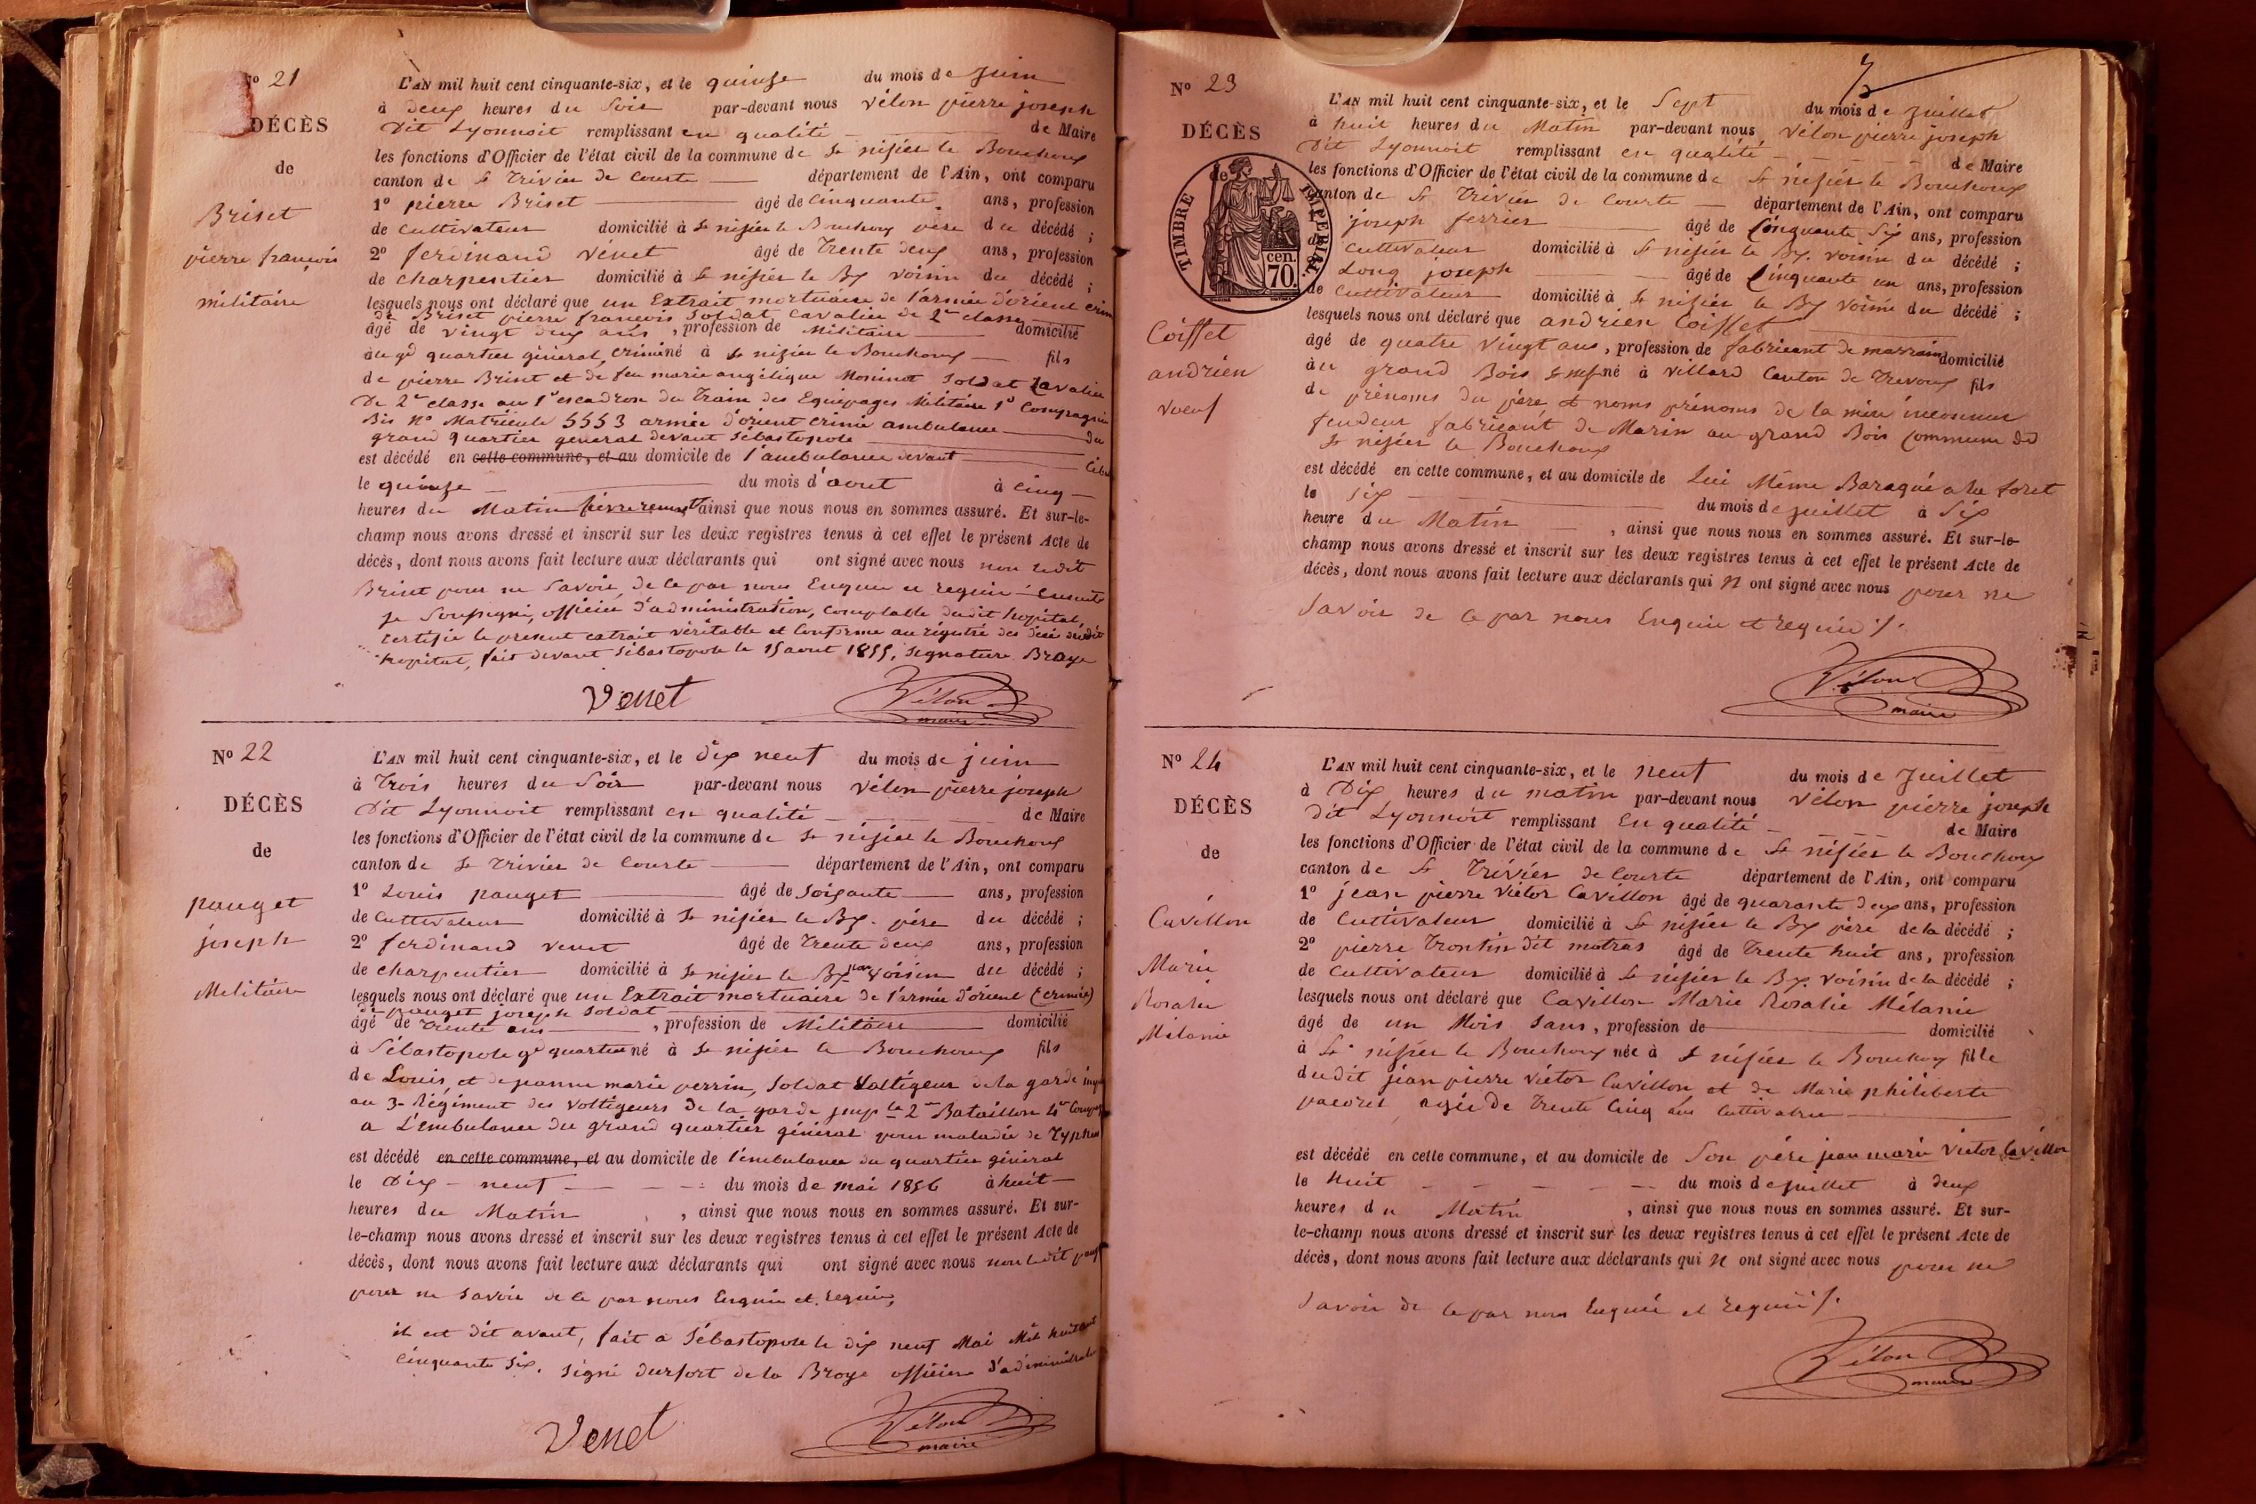 N° 21
DÉCÈS
de
Briset
pierre françois
militaire
L'AN mil huit cent cinquante-six, et le quinze du mois de Juin
à deux heures du Soir par-devant nous Vélon pierre joseph
Dit Lyonnoit remplissant en qualité de Maire
les fonctions d'Officier de l'état civil de la commune de St nisier le Bouchoux
canton de St Trivier de Courte département de l'Ain, ont comparu
1° pierre Briset âgé de Cinquante ans, profession
de Cultivateur domicilié à St nisier le Bouchoux père du décédé ;
2° ferdinand Vénet âgé de Trente deux ans, profession
de Charpentier domicilié à St nisier le Bx voisin du décédé ;
lesquels nous ont déclaré que un Extrait mortuaire de l'armée d'orient
de Briset pierre francois Soldat Cavalier de 2e classe
âgé de vingt deux ans, profession de Militaire domicilié
au gd quartier géneral, né à St nisier le Bouchoux fils
de pierre Briset et de feu marie angélique Moninot Soldat Cavalier
De 2e classe au 1e escadron du Train des Equipages Militaire 1e Compagnie
Bis N° Matricule 5553 armée d'orient Crimée ambulance du
grand quartier general devant Sébastopole
est décédé en cette commune, et au domicile de l'ambulance devant
le quinze du mois d'aout à Cinq
heures du Matin ainsi que nous nous en sommes assuré. Et sur-le-
champ nous avons dressé et inscrit sur les deux registres tenus à cet effet le présent Acte de
décès, dont nous avons fait lecture aux déclarants qui ont signé avec nous non ledit
Briset pour ne Savoir, de ce par nous Enquie et requie Ensuite
Je Soussigné, officier d'administration, Comptable dudit hopital,
certifie le present extrait véritable et Conforme au régistre des décés dudit
hopital, fait devant Sébastopole le 15 aout 1855, Signature Broye
Venet Vélon
maire
N° 22
DÉCÈS
de
pauget
joseph
Militaire
L'AN mil huit cent cinquante-six, et le Dix neuf du mois de juin
à Trois heures du Soir par-devant nous Vélon pierre joseph
Dit Lyonnoit remplissant en qualité de Maire
les fonctions d'Officier de l'état civil de la commune de St nisier le Bouchoux
canton de St Trivier de Courte département de l'Ain, ont comparu
1° Louis pauget âgé de Soixante ans, profession
de Cultivateur domicilié à St nisier le Bx. père du décédé ;
2° ferdinand venet âgé de Trente deux ans, profession
de charpentier domicilié à St nisier le Bx non voisin du décédé ;
lesquels nous ont déclaré que un Extrait mortuaire de l'armée d'orient (crimée)
de pauget joseph Soldat
âgé de Trente ans, profession de Militaire domicilié
à Sébastopole gd quartier né à St nisier le Bouchoux fils
de Louis, et de jeanne marie perrin, Soldat Voltigeur de la garde imp
au 3e Régiment des Voltigeurs De la garde imple 2e Bataillon 4e Comp
a L'embulance du grand quartier général pour maladie de Typhus
est décédé en cette commune, et au domicile de l'embulance du quartier général
le Dix neuf du mois de mai 1856 à huit
heures du Matin, ainsi que nous nous en sommes assuré. Et sur-
le-champ nous avons dressé et inscrit sur les deux registres tenus à cet effet le présent Acte de
décès, dont nous avons fait lecture aux déclarants qui ont signé avec nous non ledit paug
pour ne Savoir de ce par nous Enquie et requie,
it est dit avant, fait a Sébastopole le dix neuf Mai Mil huit cent
Cinquante Six. Signé Durfort de la Broye officier d'administrat
Venet Vélon
maire
7
N° 23
DÉCÈS
de
TIMBRE IMPERIAL.
70 cen.
Coiffet
andrien
voeuf
L'AN mil huit cent cinquante-six, et le Sept du mois de Juillet
à huit heures du Matin par-devant nous Vélon pierre joseph
Dit Lyonnoit remplissant en qualité de Maire
les fonctions d'Officier de l'état civil de la commune de St nisier le Bouchoux
canton de St Trivier de Courte département de l'Ain, ont comparu
joseph ferrier âgé de Cinquante Six ans, profession
de Cultivateur domicilié à St nisier le Bx. voisin du décédé ;
Long joseph âgé de Cinquante un ans, profession
de Cultivateur domicilié à St nisier le Bx voisin du décédé ;
lesquels nous ont déclaré que andrien Coiffet
âgé de quatre Vingt ans, profession de fabricant de marrain domicilié
au grand Bois St nis né à Villard Canton de Trevoux fils
de prénoms du père et noms prénoms de la mère inconnus
fendeur fabricant de Marin au grand Bois Commune de
St nisier le Bouchoux
est décédé en cette commune, et au domicile de Lui Même Baraque a la foret
le Six du mois de juillet à Six
heure du Matin, ainsi que nous nous en sommes assuré. Et sur-le-
champ nous avons dressé et inscrit sur les deux registres tenus à cet effet le présent Acte de
décès, dont nous avons fait lecture aux déclarants qui N ont signé avec nous pour ne
Savoir de ce par nous Enquie et requie /.
Vélon
maire
N° 24
DÉCÈS
de
Cavillon
Marie
Rosalie
Mélanie
L'AN mil huit cent cinquante-six, et le neuf du mois de Juillet
à Dix heures du matin par-devant nous Vélon pierre joseph
Dit Lyonnoit remplissant En qualité de Maire
les fonctions d'Officier de l'état civil de la commune de St nisier le Bouchoux
canton de St Trivier de Courte département de l'Ain, ont comparu
1° jean pierre Victor Cavillon âgé de quarante deux ans, profession
de Cultivateur domicilié à St nisier le Bx père de la décédé ;
2° pierre Trontin dit matras âgé de Trente huit ans, profession
de Cultivateur domicilié à St nisier le Bx. voisin de la décédé ;
lesquels nous ont déclaré que Cavillon Marie Rosalie Mélanie
âgé de un Mois Sans, profession de domicilié
à St. nisier le Bouchoux née à St nisier le Bouchoux fille
dudit jean pierre Victor Cavillon et de Marie philiberte
pacoret agée De Trente Cinq ans Cultivatrice
est décédé en cette commune, et au domicile de Son père jean marie Victor Cavillon
le huit du mois de juillet à deux
heures du Matin, ainsi que nous nous en sommes assuré. Et sur-
le-champ nous avons dressé et inscrit sur les deux registres tenus à cet effet le présent Acte de
décès, dont nous avons fait lecture aux déclarants qui N ont signé avec nous pour ne
Savoir de ce par nous Enquie et requis /.
Vélon
maire